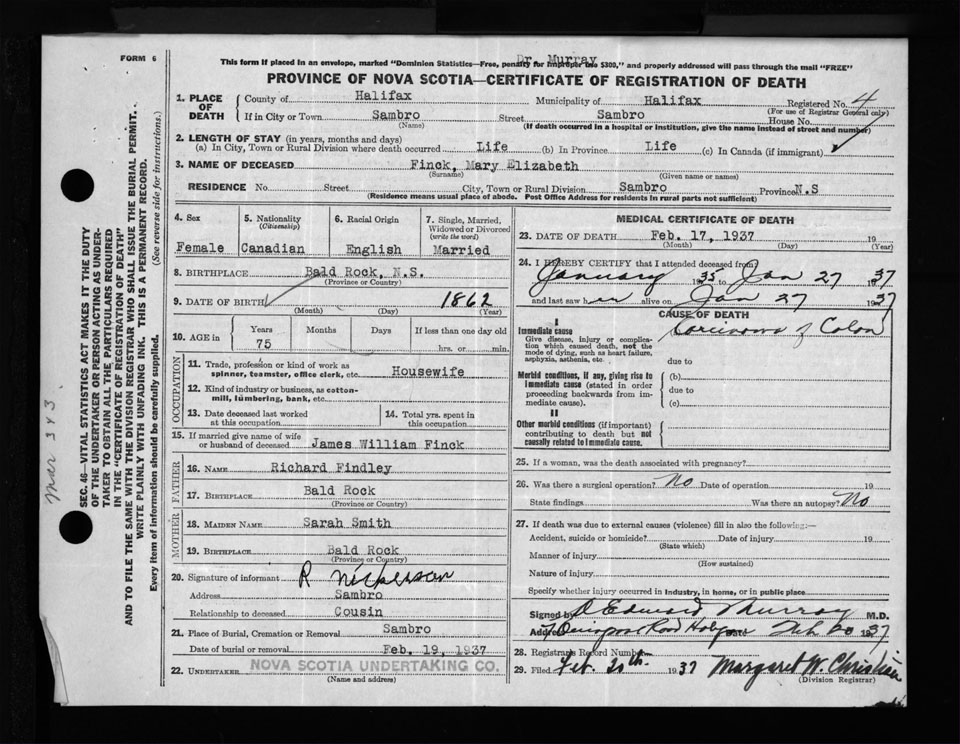 FORM 6
This form if placed in an envelope, marked "Dominion Statistics—Free, penalty for improper use $300," and properly addressed will pass through the mail "FREE"
Dr. Murray
PROVINCE OF NOVA SCOTIA—CERTIFICATE OF REGISTRATION OF DEATH
1. PLACE OF DEATH County of Halifax Municipality of Halifax Registered No. 4
(For use of Registrar General only)
If in City or Town Sambro Street Sambro House No.
(Name) (If death occurred in a hospital or institution, give the name instead of street and number)
2. LENGTH OF STAY (in years, months and days)
(a) In City, Town or Rural Division where death occurred Life (b) In Province Life (c) In Canada (if immigrant)
3. NAME OF DECEASED Finck, Mary Elizabeth
(Surname) (Given name or names)
RESIDENCE No. Street City, Town or Rural Division Sambro Province N.S
(Residence means usual place of abode. Post Office Address for residents in rural parts not sufficient)
4. Sex Female
5. Nationality (Citizenship) Canadian
6. Racial Origin English
7. Single, Married, Widowed or Divorced (write the word) Married
8. BIRTHPLACE Bald Rock, N.S.
(Province or Country)
9. DATE OF BIRTH 1862
(Month) (Day) (Year)
10. AGE in Years Months Days If less than one day old
75 hrs. or min.
OCCUPATION
11. Trade, profession or kind of work as spinner, teamster, office clerk, etc. Housewife
12. Kind of industry or business, as cotton-mill, lumbering, bank, etc.
13. Date deceased last worked at this occupation
14. Total yrs. spent in this occupation
15. If married give name of wife or husband of deceased James William Finck
FATHER
16. NAME Richard Findley
17. BIRTHPLACE Bald Rock
(Province or Country)
MOTHER
18. MAIDEN NAME Sarah Smith
19. BIRTHPLACE Bald Rock
(Province or Country)
20. Signature of informant R Nickerson
Address Sambro
Relationship to deceased Cousin
21. Place of Burial, Cremation or Removal Sambro
Date of burial or removal Feb. 19, 1937
22. UNDERTAKER NOVA SCOTIA UNDERTAKING CO.
(Name and address)
MEDICAL CERTIFICATE OF DEATH
23. DATE OF DEATH Feb. 17, 1937 19
(Month) (Day) (Year)
24. I HEREBY CERTIFY that I attended deceased from
January 1935 to Jan 27 1937
and last saw her alive on Jan 27 1937
CAUSE OF DEATH
I
Immediate cause Carcinoma of Colon
Give disease, injury or complication which caused death, not the mode of dying, such as heart failure, asphyxia, asthenia, etc.
due to
Morbid conditions, if any, giving rise to immediate cause (stated in order proceeding backwards from immediate cause).
(b)
due to
(c)
II
Other morbid conditions (if important) contributing to death but not causally related to immediate cause.
25. If a woman, was the death associated with pregnancy?
26. Was there a surgical operation? No Date of operation 19
State findings Was there an autopsy? No
27. If death was due to external causes (violence) fill in also the following:—
Accident, suicide or homicide? Date of injury 19
(State which)
Manner of injury
(How sustained)
Nature of injury
Specify whether injury occurred in industry, in home, or in public place
Signed by D Edward Murray M.D.
Address Quinpool Road Date Feb 20 1937
28. Registrars Record Number
29. Filed Feb. 20th 1937 Margaret W. Christian
(Division Registrar)
SEC. 46—VITAL STATISTICS ACT MAKES IT THE DUTY
OF THE UNDERTAKER OR PERSON ACTING AS UNDER-
TAKER TO OBTAIN ALL THE PARTICULARS REQUIRED
IN THE "CERTIFICATE OF REGISTRATION OF DEATH"
AND TO FILE THE SAME WITH THE DIVISION REGISTRAR WHO SHALL ISSUE THE BURIAL PERMIT.
WRITE PLAINLY WITH UNFADING INK. THIS IS A PERMANENT RECORD.
Every item of information should be carefully supplied. (See reverse side for instructions.)